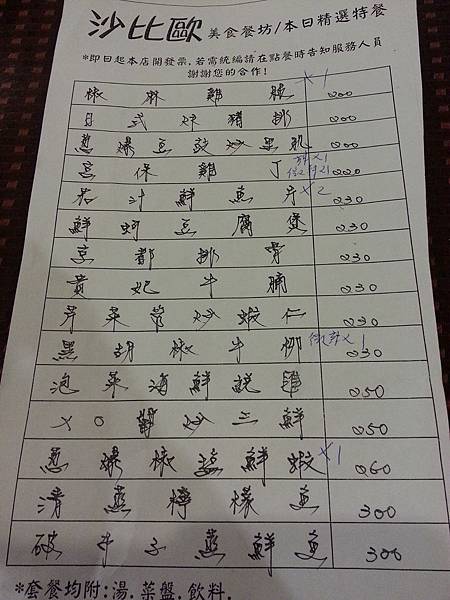 沙比歐 美食餐坊/本日精選特餐
*即日起本店開發票,若需統編請在點餐時告知服務人員
謝謝您的合作!
椒麻雞腿 x1 200
日式炸豬排 200
蔥爆豆豉炒黑肌 200
宮保雞丁 x1 220
茄汁鮮魚片 x2 230
鮮蚵豆腐煲 230
京都排骨 230
貴妃牛腩 230
芹菜管炒蝦仁 230
黑胡椒牛柳 x1 230
泡菜海鮮說雞 250
XO醬炒三鮮 250
蔥爆椒鹽鮮蝦 x1 260
清蒸檸檬魚 300
破布子蒸鮮魚 300
*套餐均附:湯.菜盤.飲料.